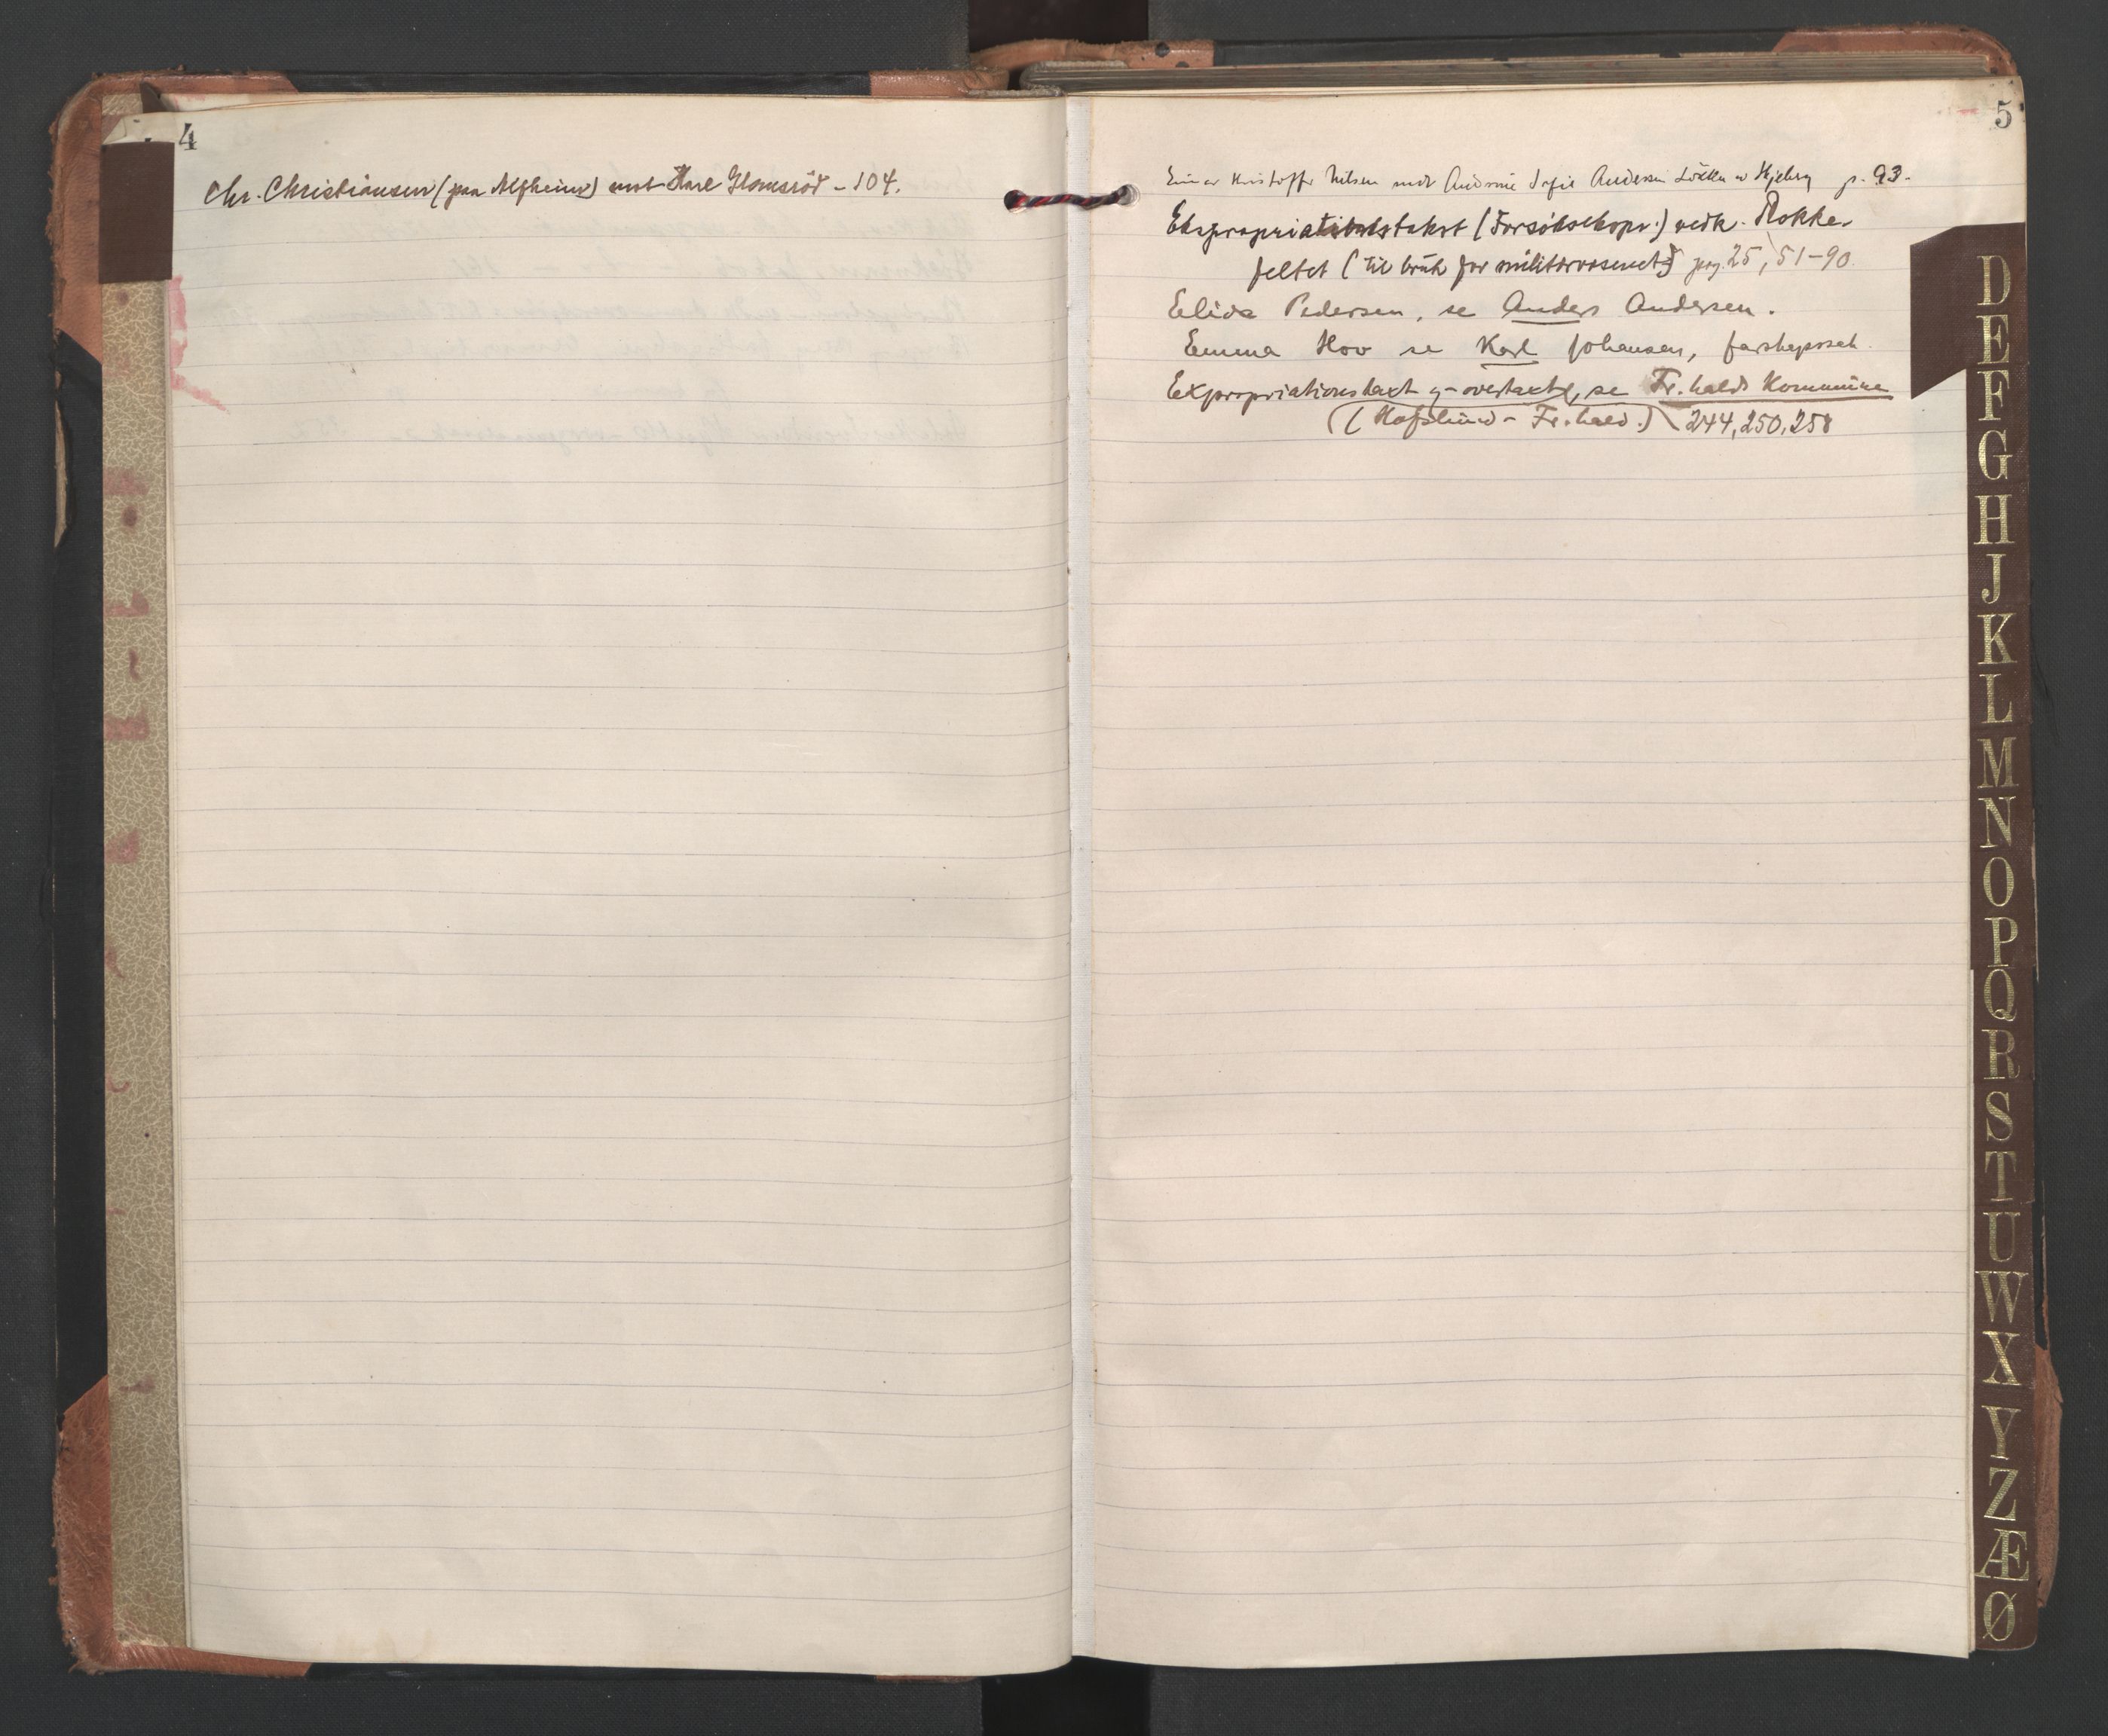 4
Chr. Christiansen (paa Alfheim) mot Karl Glomsröd - 104.
5
Einar Kristoffer Nilsen mot Andrine Sofie Andersen Lökken av Kjeberg p. 93.
Ekspropriationstakst (Forsöksekspr.) vedk. Rokke-
feltet (til bruk for militærvæsenet) pag. 25, 51-90.
Elida Pedersen, se Anders Andersen.
Emma Hov se Karl Johansen, farskapssak.
Expropriationstaxt og -overtaxt, se Fr.halds Kommune
(Hafslund - Fr.hald.) 244, 250, 258
D
E
F
G
H
J
K
L
M
N
O
P
Q
R
S
T
U
W
X
Y
Z
Æ
Ø